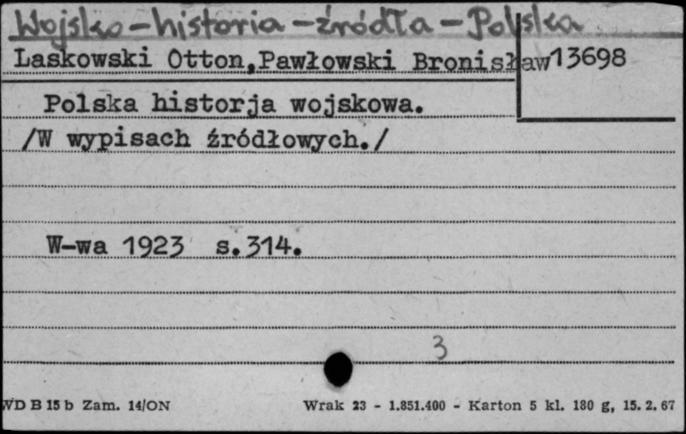 Wojsko – historia – źródła – Polska
Laskowski Otton,Pawłowski Bronisław 13698
Polska historja wojskowa.
/W wypisach źródłowych./
W-wa 1923 s.314.
3
WD B 15 b Zam. 14/ON Wrak 23 - 1.851.400 - Karton 5 kl. 180 g, 15. 2. 67